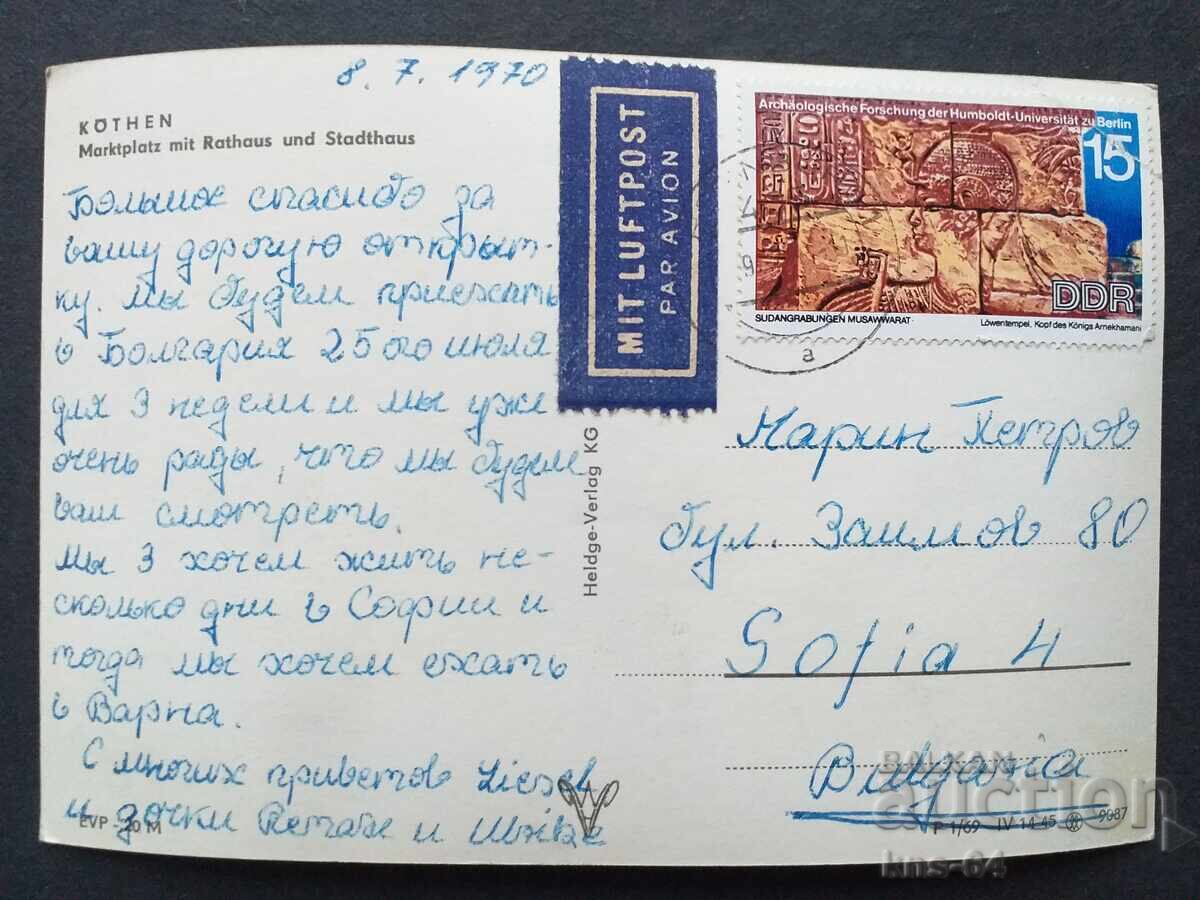 8. 7. 1970
KÖTHEN
Marktplatz mit Rathaus und Stadthaus
Большое спасибо за
вашу дорогую открыт-
ку. Мы будем приезжать
в Болгарих 25ого июля
для 3 недели и мы уже
очень рады, что мы будем
ваш смотреть.
Мы 3 хочем жить не-
сколько дни в Софии и
тогда мы хочем ехать
в Варна.
С многих приветов Liesel
и дочки
и
EVP - 20 M
MIT LUFTPOST
PAR AVION
Heldge-Verlag KG
Archäologische Forschung der Humboldt-Universität zu Berlin
15
DDR
SUDANGRABUNGEN MUSAWWARAT
Löwentempel, Kopf des Königs Arnekhamani
a
Марин Петров
бул. Заимов 80
Sofia 4
Bulgaria
P 1/69 IV-14-45 9087
BALKAN
auction
kns-64